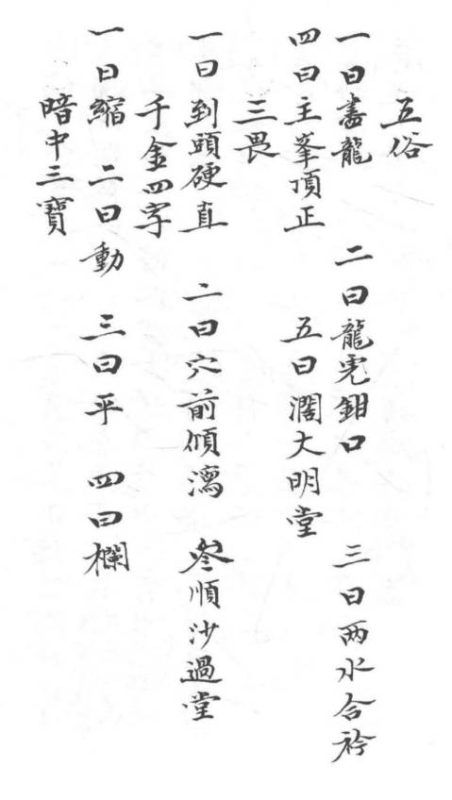 五俗
一曰盡龍 二曰龍虎鉗口 三曰两水合衿
四曰主峯頂正 五曰濶大明堂
三畏
一曰到頭硬直 二曰穴前傾瀉 叅順沙過堂
千金四字
一曰縮 二曰動 三曰平 四曰欄
暗中三寶